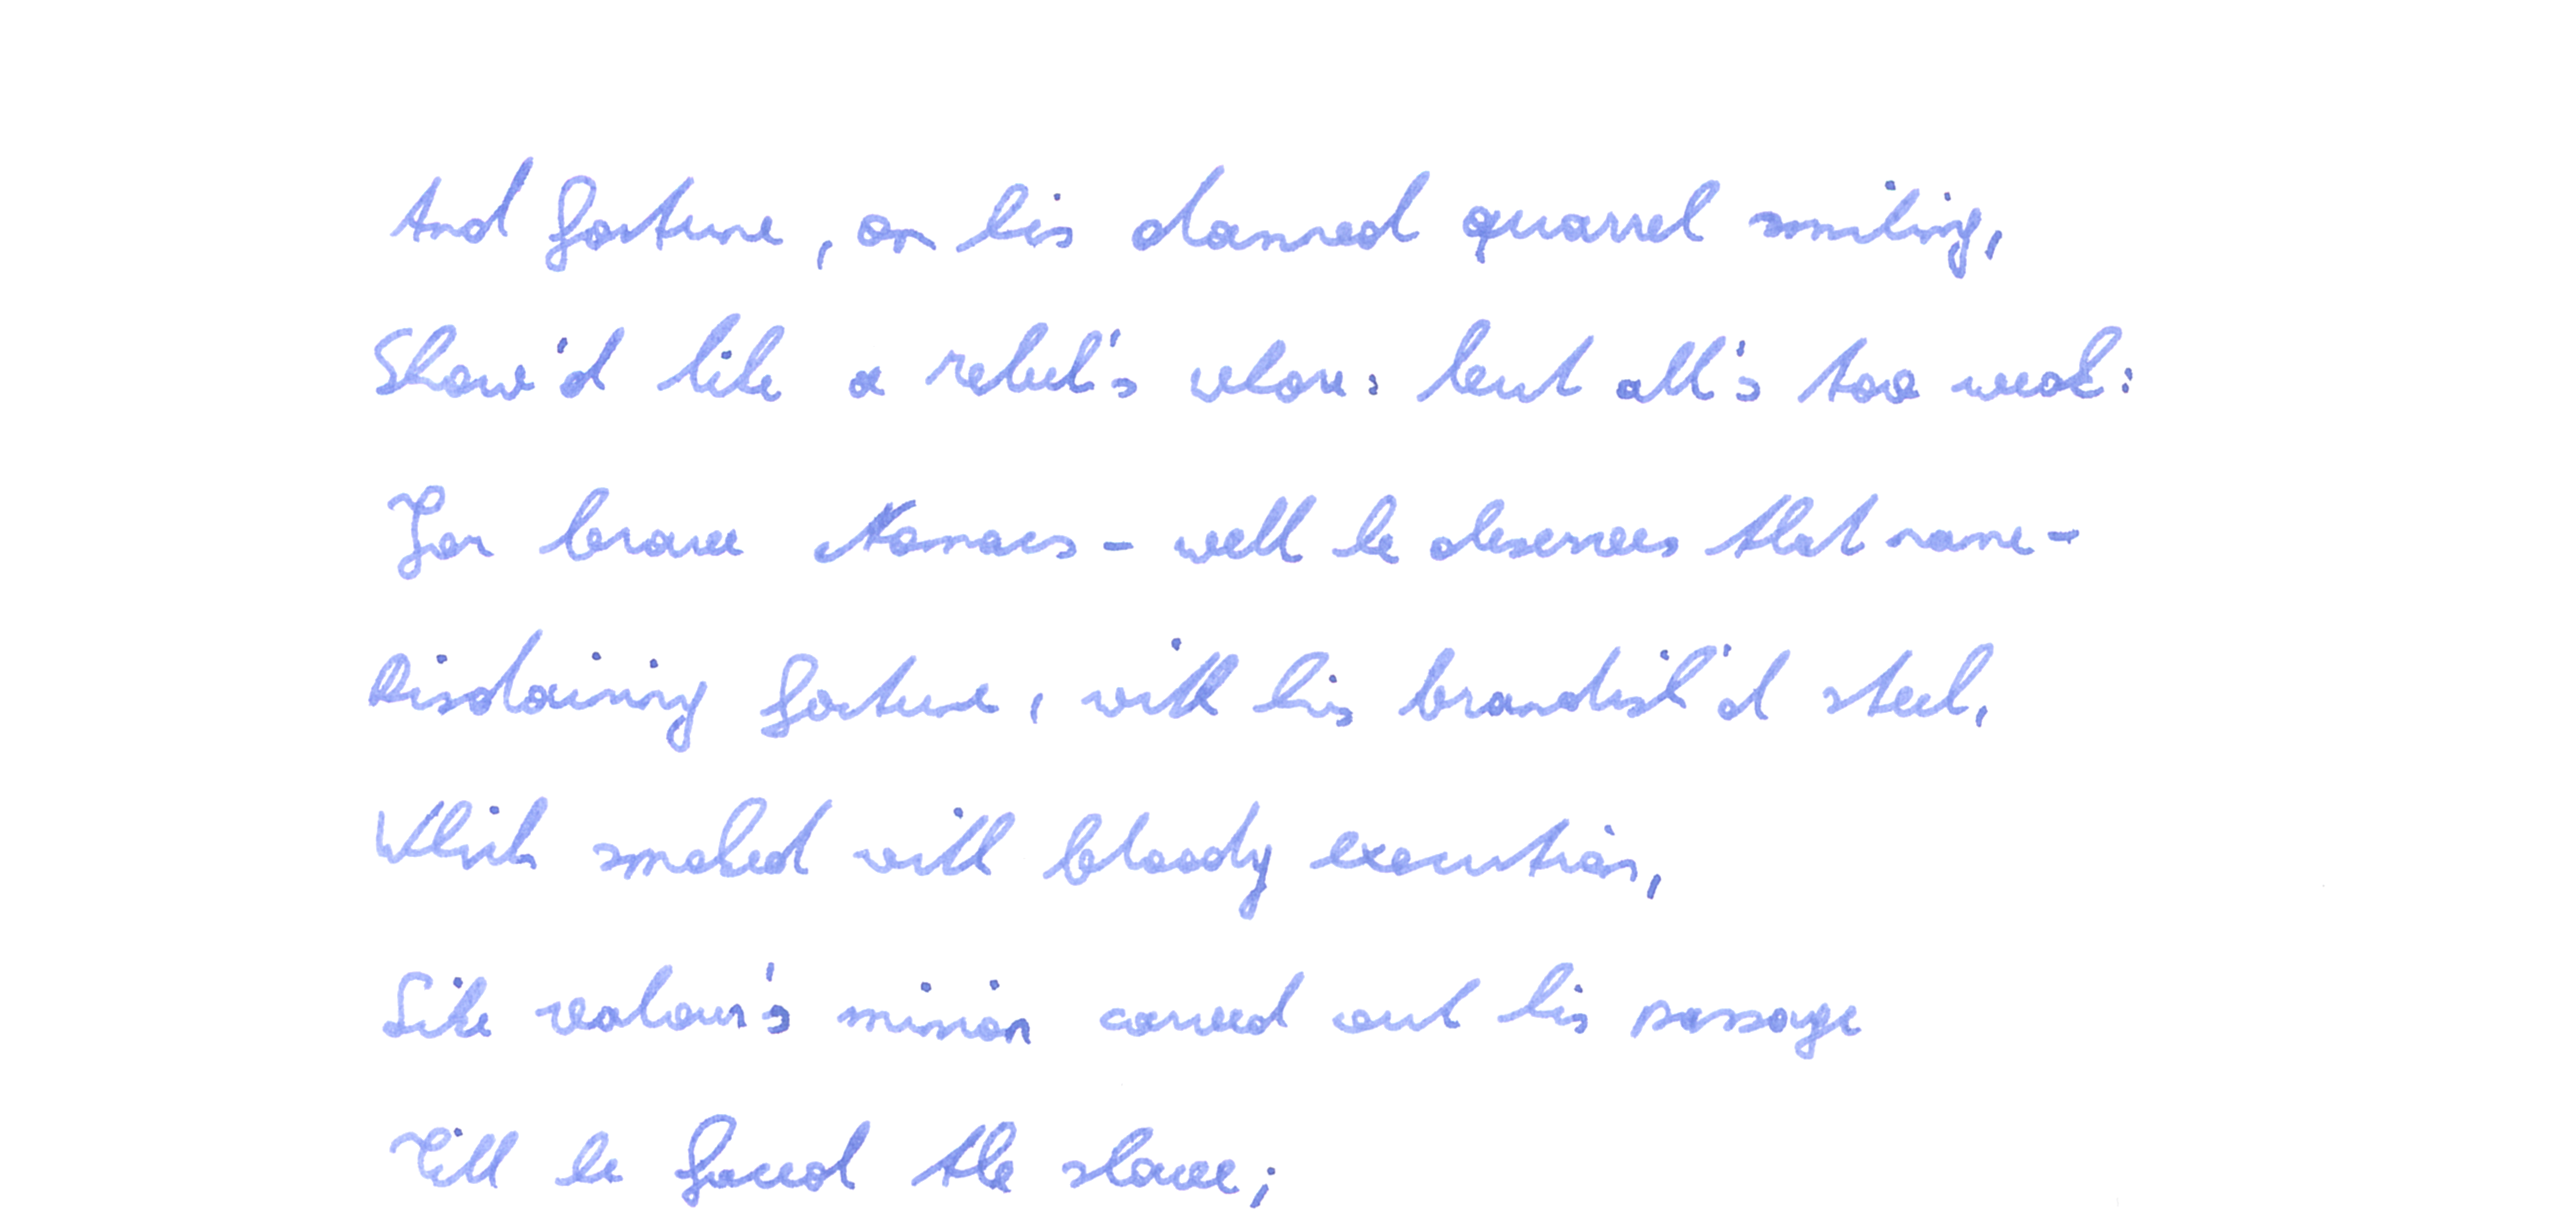 And fortune, on his damned quarrel smiling,
Show'd like a rebel's whore: but all's too weak:
For brave - well he deserves that name-
Disdaining fortune, with his brandish'd steel,
Which smoked with bloody execution,
Like valour's minion carved out his passage
Till he faced the slave;